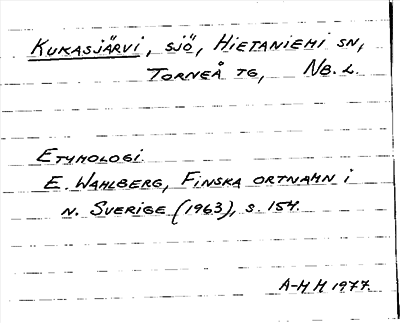 KUKASJÄRVI, SJÖ, HIETANIEMI SN,
TORNEÅ TG, NB. L.
ETYMOLOGI.
E. WAHLBERG, FINSKA ORTNAMN I
N. SVERIGE (1963), S. 154.
A-M H 1977